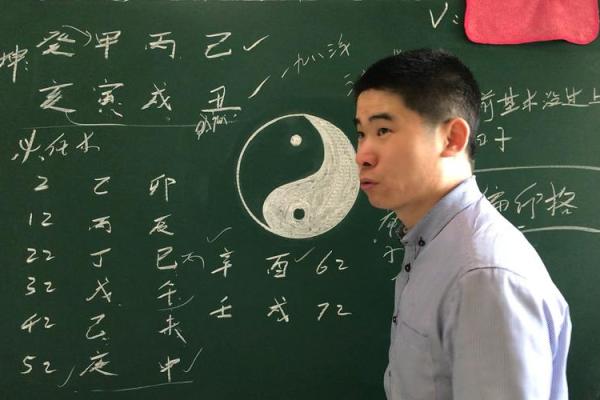 坤: 癸 甲 丙 己
一九八三
亥 寅 戌 丑
2 乙 卯
12 丙 辰
22 丁 巳 丙 辛 酉 62
32 戊 午 壬 戌 72
42 己 未
52 庚 申
V:
前基本没过上
日子
偏印格